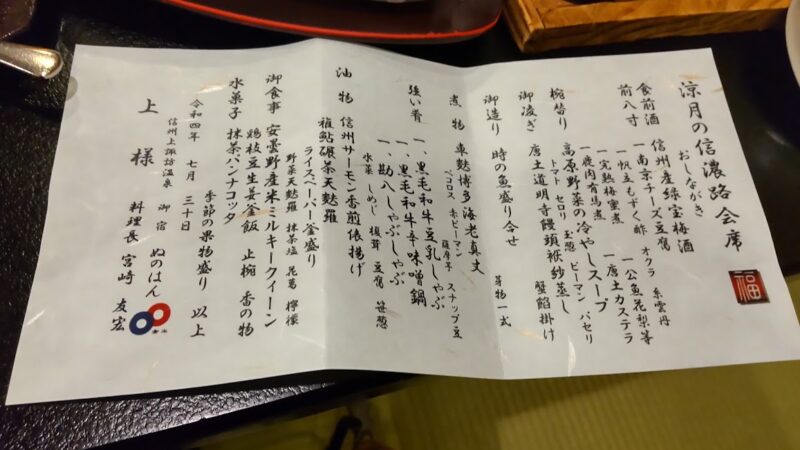 涼月の信濃路会席
おしながき
福
食前酒 信州産緑宝梅酒
前八寸 一南京チーズ豆腐 オクラ 糸雲丹
一帆立もずく酢 一公魚花梨等
一完熟梅蜜煮 一唐土カステラ
一鹿肉有馬煮
椀替り 高原野菜の冷やしスープ
トマト セロリ 玉葱 ピーマン パセリ
御凌ぎ 唐土道明寺饅頭袱紗蒸し
蟹餡掛け
御造り 時の魚盛り合せ 芽物一式
煮物 車麩博多海老真丈
ペコロス 赤ピーマン 薩摩芋 スナップ豆
強い肴 一、黒毛和牛豆乳しゃぶ
一、黒毛和牛辛味噌鍋
一、勘八しゃぶしゃぶ
水菜 しめじ 榎茸 豆腐 笹葱
油物 信州サーモン香煎俵揚げ
稚鮎碾茶天麩羅
ライスペーパー釜盛り
野菜天麩羅 抹茶塩 花葛 檸檬
御食事 安曇野産米ミルキークィーン
鶏枝豆生姜釜飯 止椀 香の物
水菓子 抹茶パンナコッタ
季節の果物盛り 以上
令和四年 七月 三十日
信州上諏訪温泉 御宿 ぬのはん
料理長 宮崎 友宏
上様